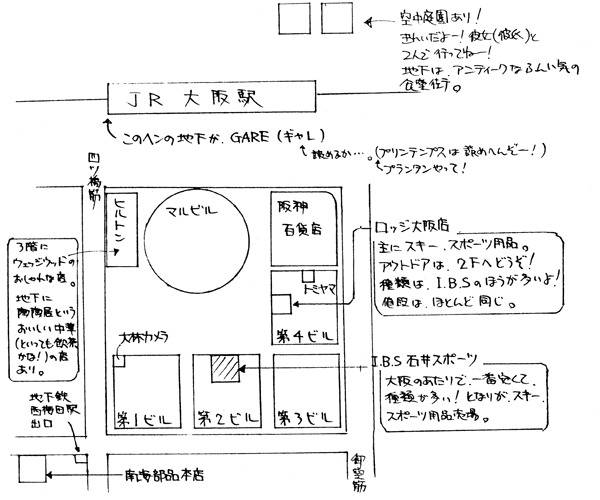 空中庭園あり！
きれいだよー！彼女(彼氏)と
2人で行ってねー！
地下は、アンティークなふんい気の
食堂街。
JR 大阪駅
このヘンの地下が、GARE (ギャレ)
読めるか…。(プリンテンプスは読めへんぞー！)
プランタンやって！
四ツ橋筋
ヒルトン
マルビル
阪神
百貨店
3階に
ウェッジウッドの
おしゃれな店。
地下に
陶陶居という
おいしい中華
(といっても飲茶
かな！)の店
あり。
ロッジ大阪店
主にスキー、スポーツ用品。
アウトドアは、2Fへどうぞ！
種類は、I.B.Sのほうが多いよ！
値段は、ほとんど同じ。
トミヤマ
第4ビル
大林カメラ
第1ビル
第2ビル
第3ビル
I.B.S 石井スポーツ
大阪のあたりで、一番安くて、
種類が多い！となりが、スキー、
スポーツ用品売場。
地下鉄
西梅田駅
出口
南海部品本店
御堂筋